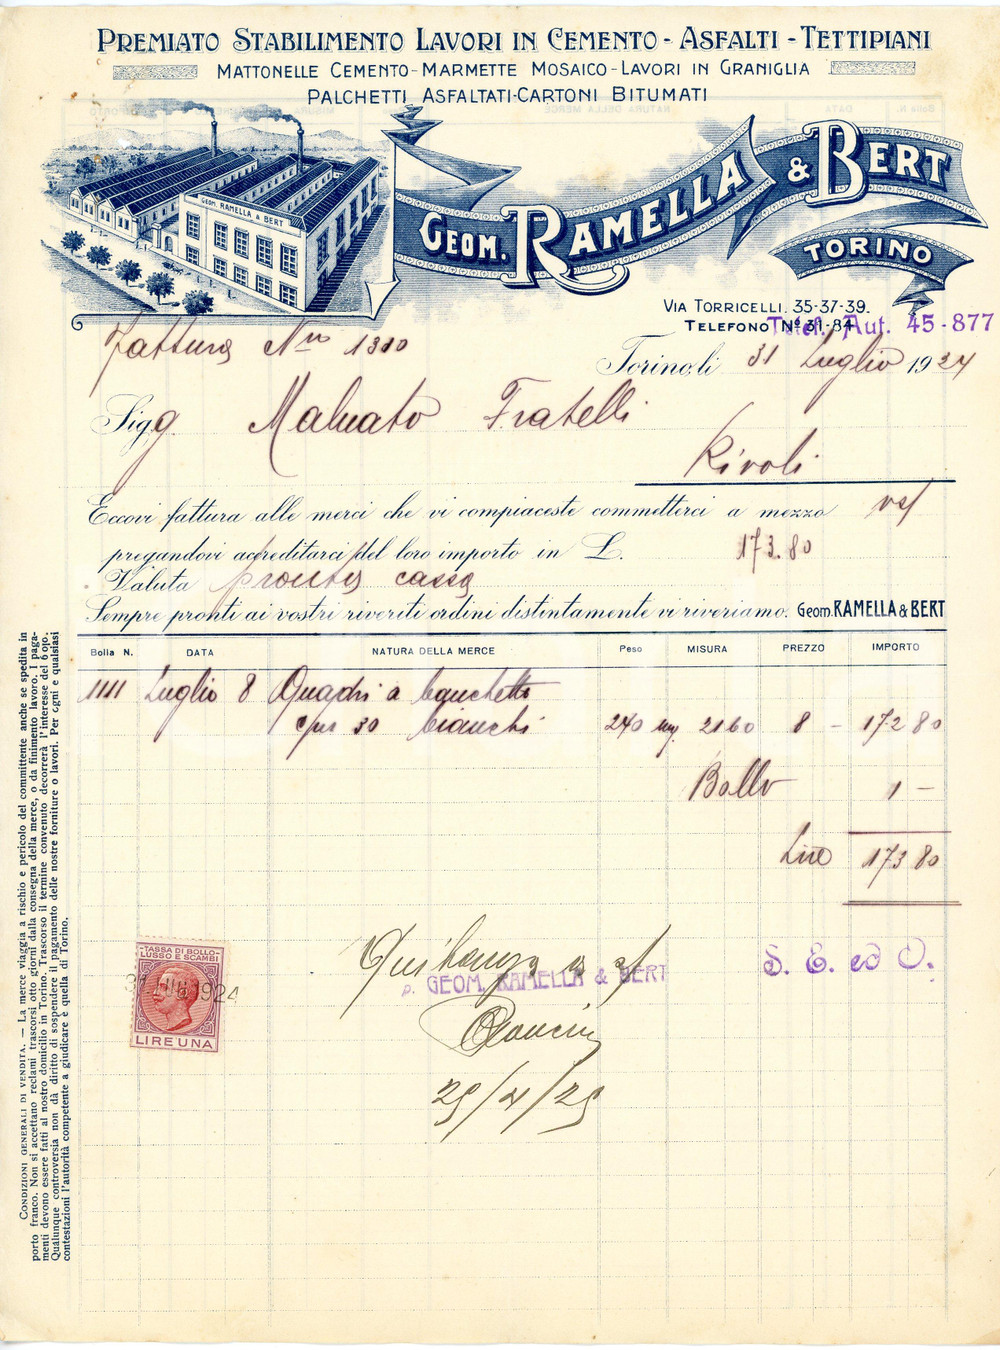 PREMIATO STABILIMENTO LAVORI IN CEMENTO - ASFALTI - TETTIPIANI
MATTONELLE CEMENTO - MARMETTE MOSAICO - LAVORI IN GRANIGLIA
PALCHETTI ASFALTATI - CARTONI BITUMATI
GEOM. RAMELLA & BERT
GEOM. RAMELLA & BERT
TORINO
VIA TORRICELLI. 35-37-39.
TELEFONO Nº 31-84
Telef. Aut. 45-877
Fattura No 1310
Torino, li 31 Luglio 1924
Sigg. Maluato Fratelli
Rivoli
Eccovi fattura alle merci che vi compiaceste commetterci a mezzo vs/
pregandovi accreditarci del loro importo in L. 173.80
Valuta pronta cassa
Sempre pronti ai vostri riveriti ordini distintamente vi riveriamo. Geom. RAMELLA & BERT
Bolla N. DATA NATURA DELLA MERCE Peso MISURA PREZZO IMPORTO
1111 Luglio 8 Quadri a
30 bianchi 240 2160 8 - 172 80
Bollo 1 -
Lire 173 80
TASSA DI BOLLO
LUSSO E SCAMBI
31 LUG 1924
LIRE UNA
Quitanza
p. GEOM. RAMELLA & BERT
S. E. ed O.
CONDIZIONI GENERALI DI VENDITA. — La merce viaggia a rischio e pericolo del committente anche se spedita in
porto franco. Non si accettano reclami trascorsi otto giorni dalla consegna della merce, o da finimento lavoro. I paga-
menti devono essere fatti al nostro domicilio in Torino. Trascorso il termine convenuto decorrerà l'interesse del 6 o/o.
Qualunque controversia non dà diritto di sospendere il pagamento delle nostre forniture o lavori. Per ogni e qualsiasi
contestazioni l'autorità competente a giudicare è quella di Torino.